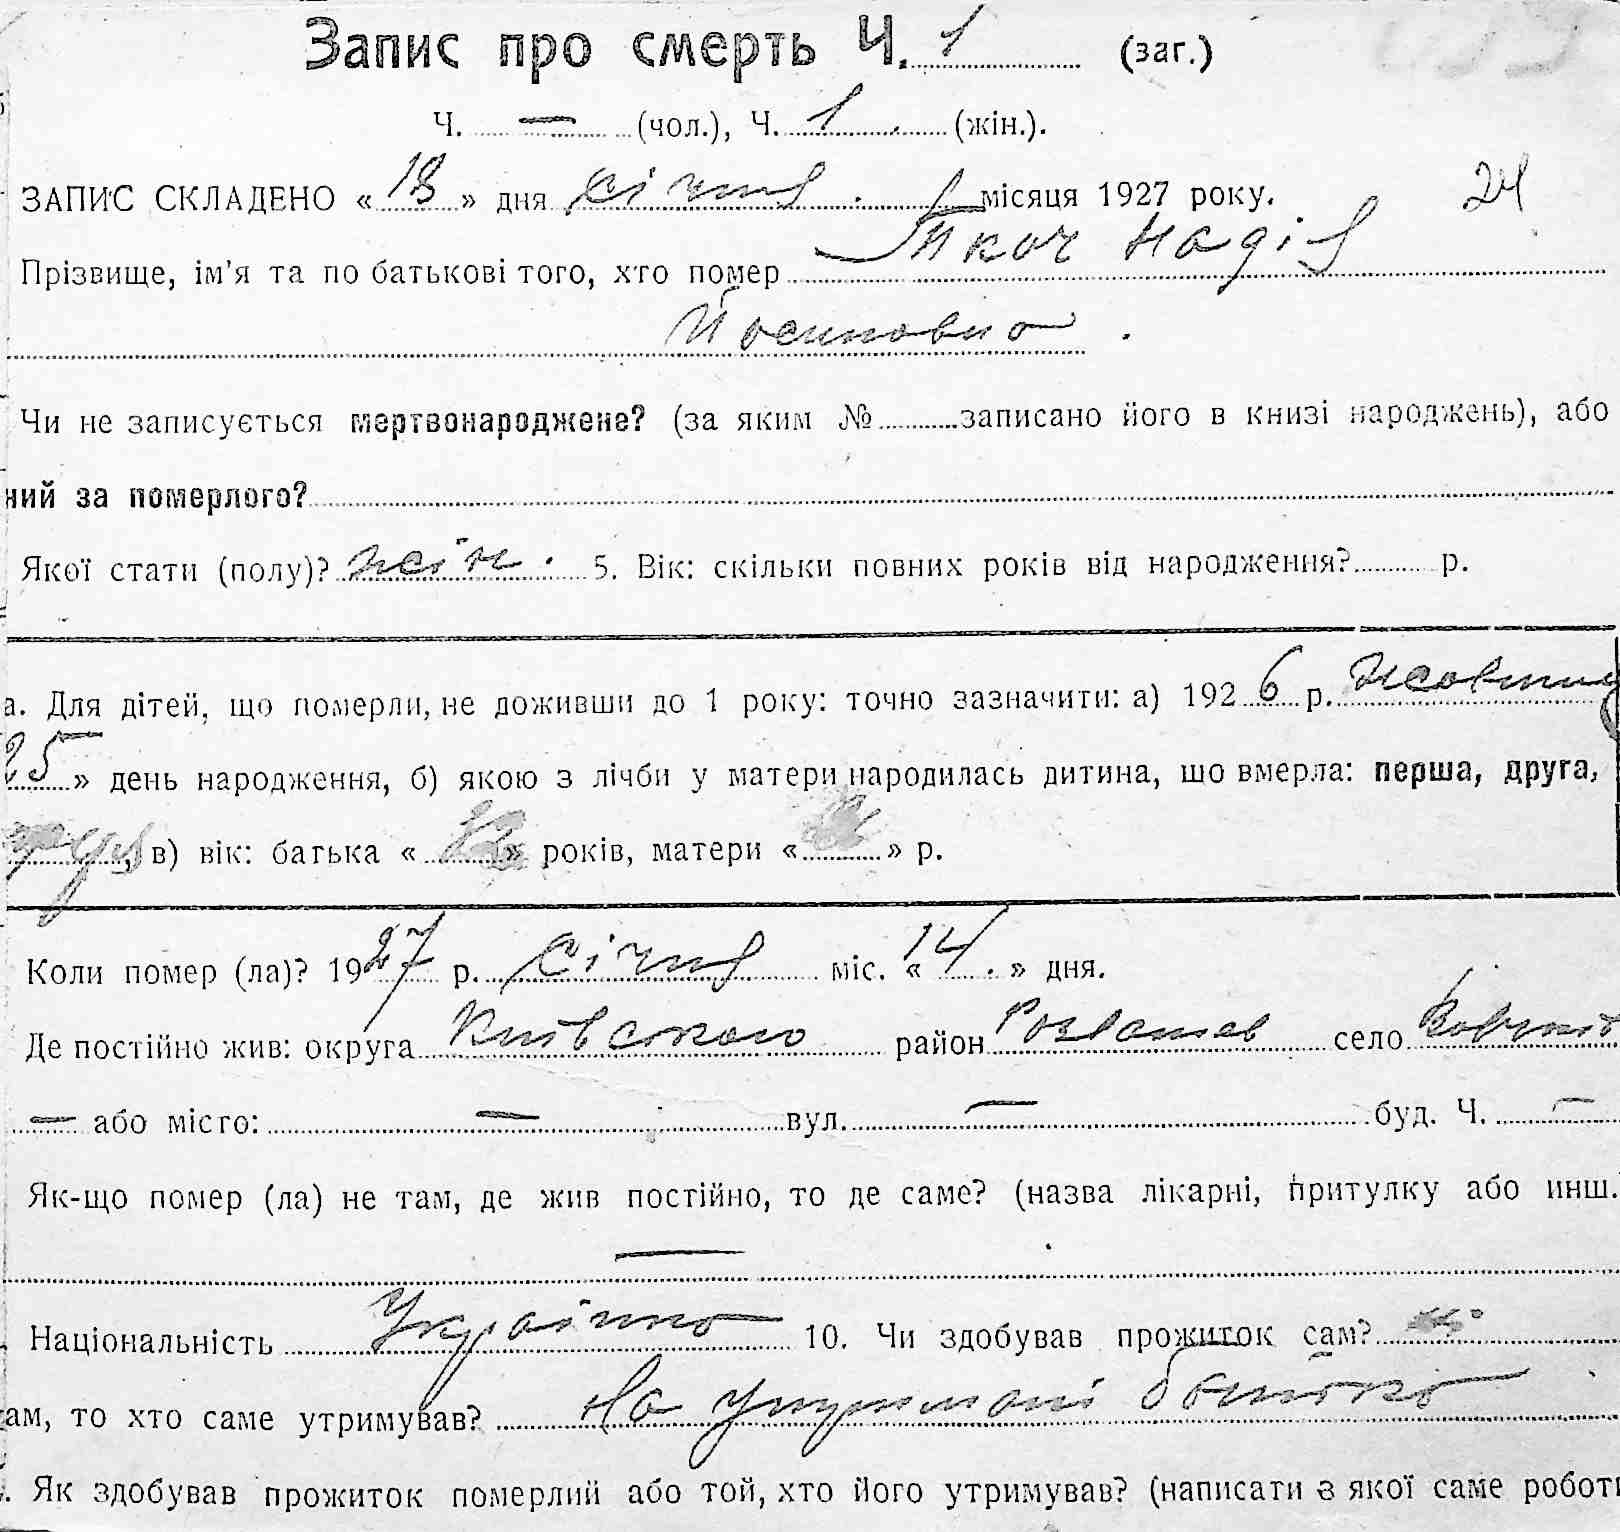 Запис про смерть Ч. 1 (заг.)
Ч. — (чол.), Ч. 1 (жін.).
ЗАПИС СКЛАДЕНО « 18 » дня січня місяця 1927 року. 24
Прізвище, ім'я та по батькові того, хто помер Ткач Надія
Йосиповна.
Чи не записується мертвонароджене? (за яким № записано його в книзі народжень), або
ний за померлого?
Якої стати (полу)? жін. 5. Вік: скільки повних років від народження? р.
а. Для дітей, що померли, не доживши до 1 року: точно зазначити: а) 1926 р. Жовтня
25 » день народження, б) якою з лічби у матери народилась дитина, що вмерла: перша, друга,
в) вік: батька « » років, матери « » р.
Коли помер (ла)? 1927 р. січня міс. « 14 » дня.
Де постійно жив: округа Київського район Розважев село
— або місто: — вул. — буд. Ч. —
Як-що помер (ла) не там, де жив постійно, то де саме? (назва лікарні, притулку або инш.
—
Національність Українка 10. Чи здобував прожиток сам? ні
ам, то хто саме утримував? На утримані батька
. Як здобував прожиток померлий або той, хто його утримував? (написати з якої саме роботи